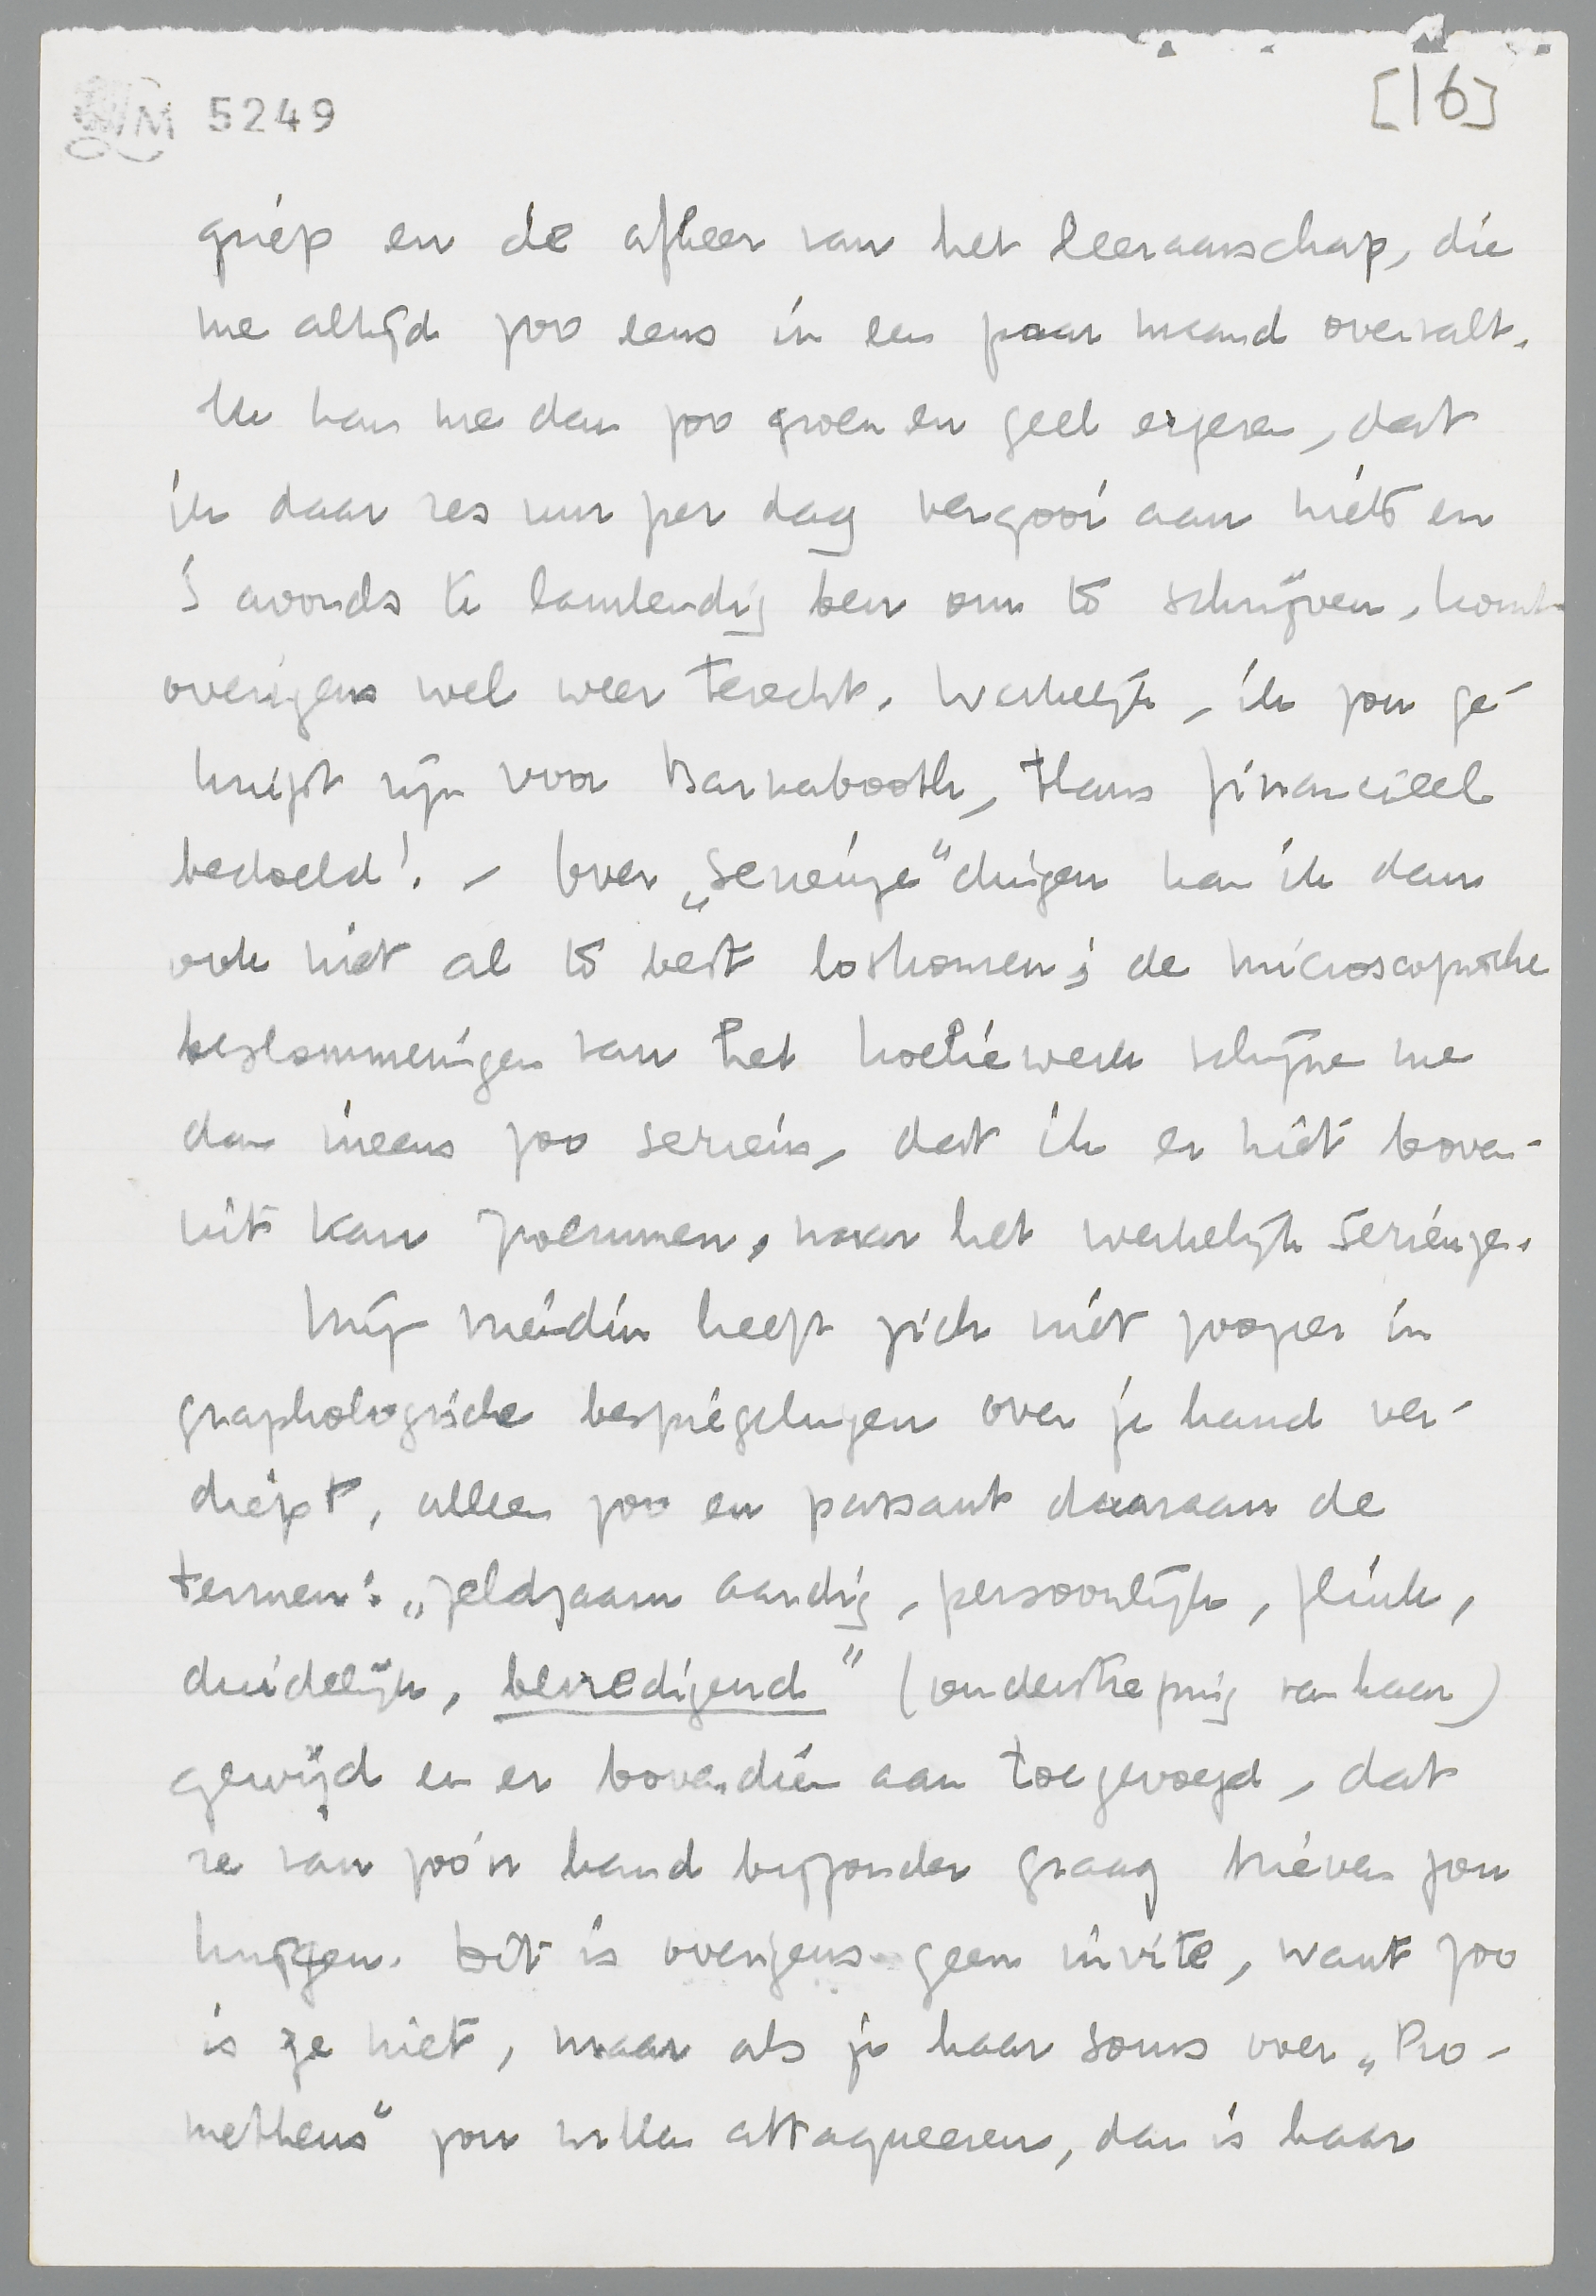 5249
[16]
griep en de afkeer van het leeraarschap, die
me altijd zoo eens in een paar maand overvalt.
Ik kan me dan zoo groen en geel ergeren, dat
ik daar zes uur per dag vergooi aan niets en
's avonds te lamlendig ben om te schrijven. Komt
overigens wel weer terecht. Werkelijk, ik zou ge-
knipt zijn voor Barnabooth, thans financieel
bedoeld! - Over „serieuze" dingen kan ik dan
ook niet al te best loskomen; de microscopische
beslommeringen van het koeliewerk schijnen me
dan ineens zoo serieus, dat ik er niet boven-
uit kan zwemmen, naar het werkelijk serieuze.
Mijn meidin heeft zich niet zoozeer in
graphologische bespiegelingen over je hand ver-
diept, alleen zoo en passant daaraan de
termen: „zeldzaam aardig, persoonlijk, flink,
duidelijk, bevredigend" (onderstreping van haar)
gewijd en er bovendien aan toegevoegd, dat
ze van zoo'n hand bijzonder graag brieven zou
krijgen. Dit is overigens geen invite, want zoo
is ze niet, maar als je haar soms over „Pro-
metheus" zou willen attaqueeren, dan is haar